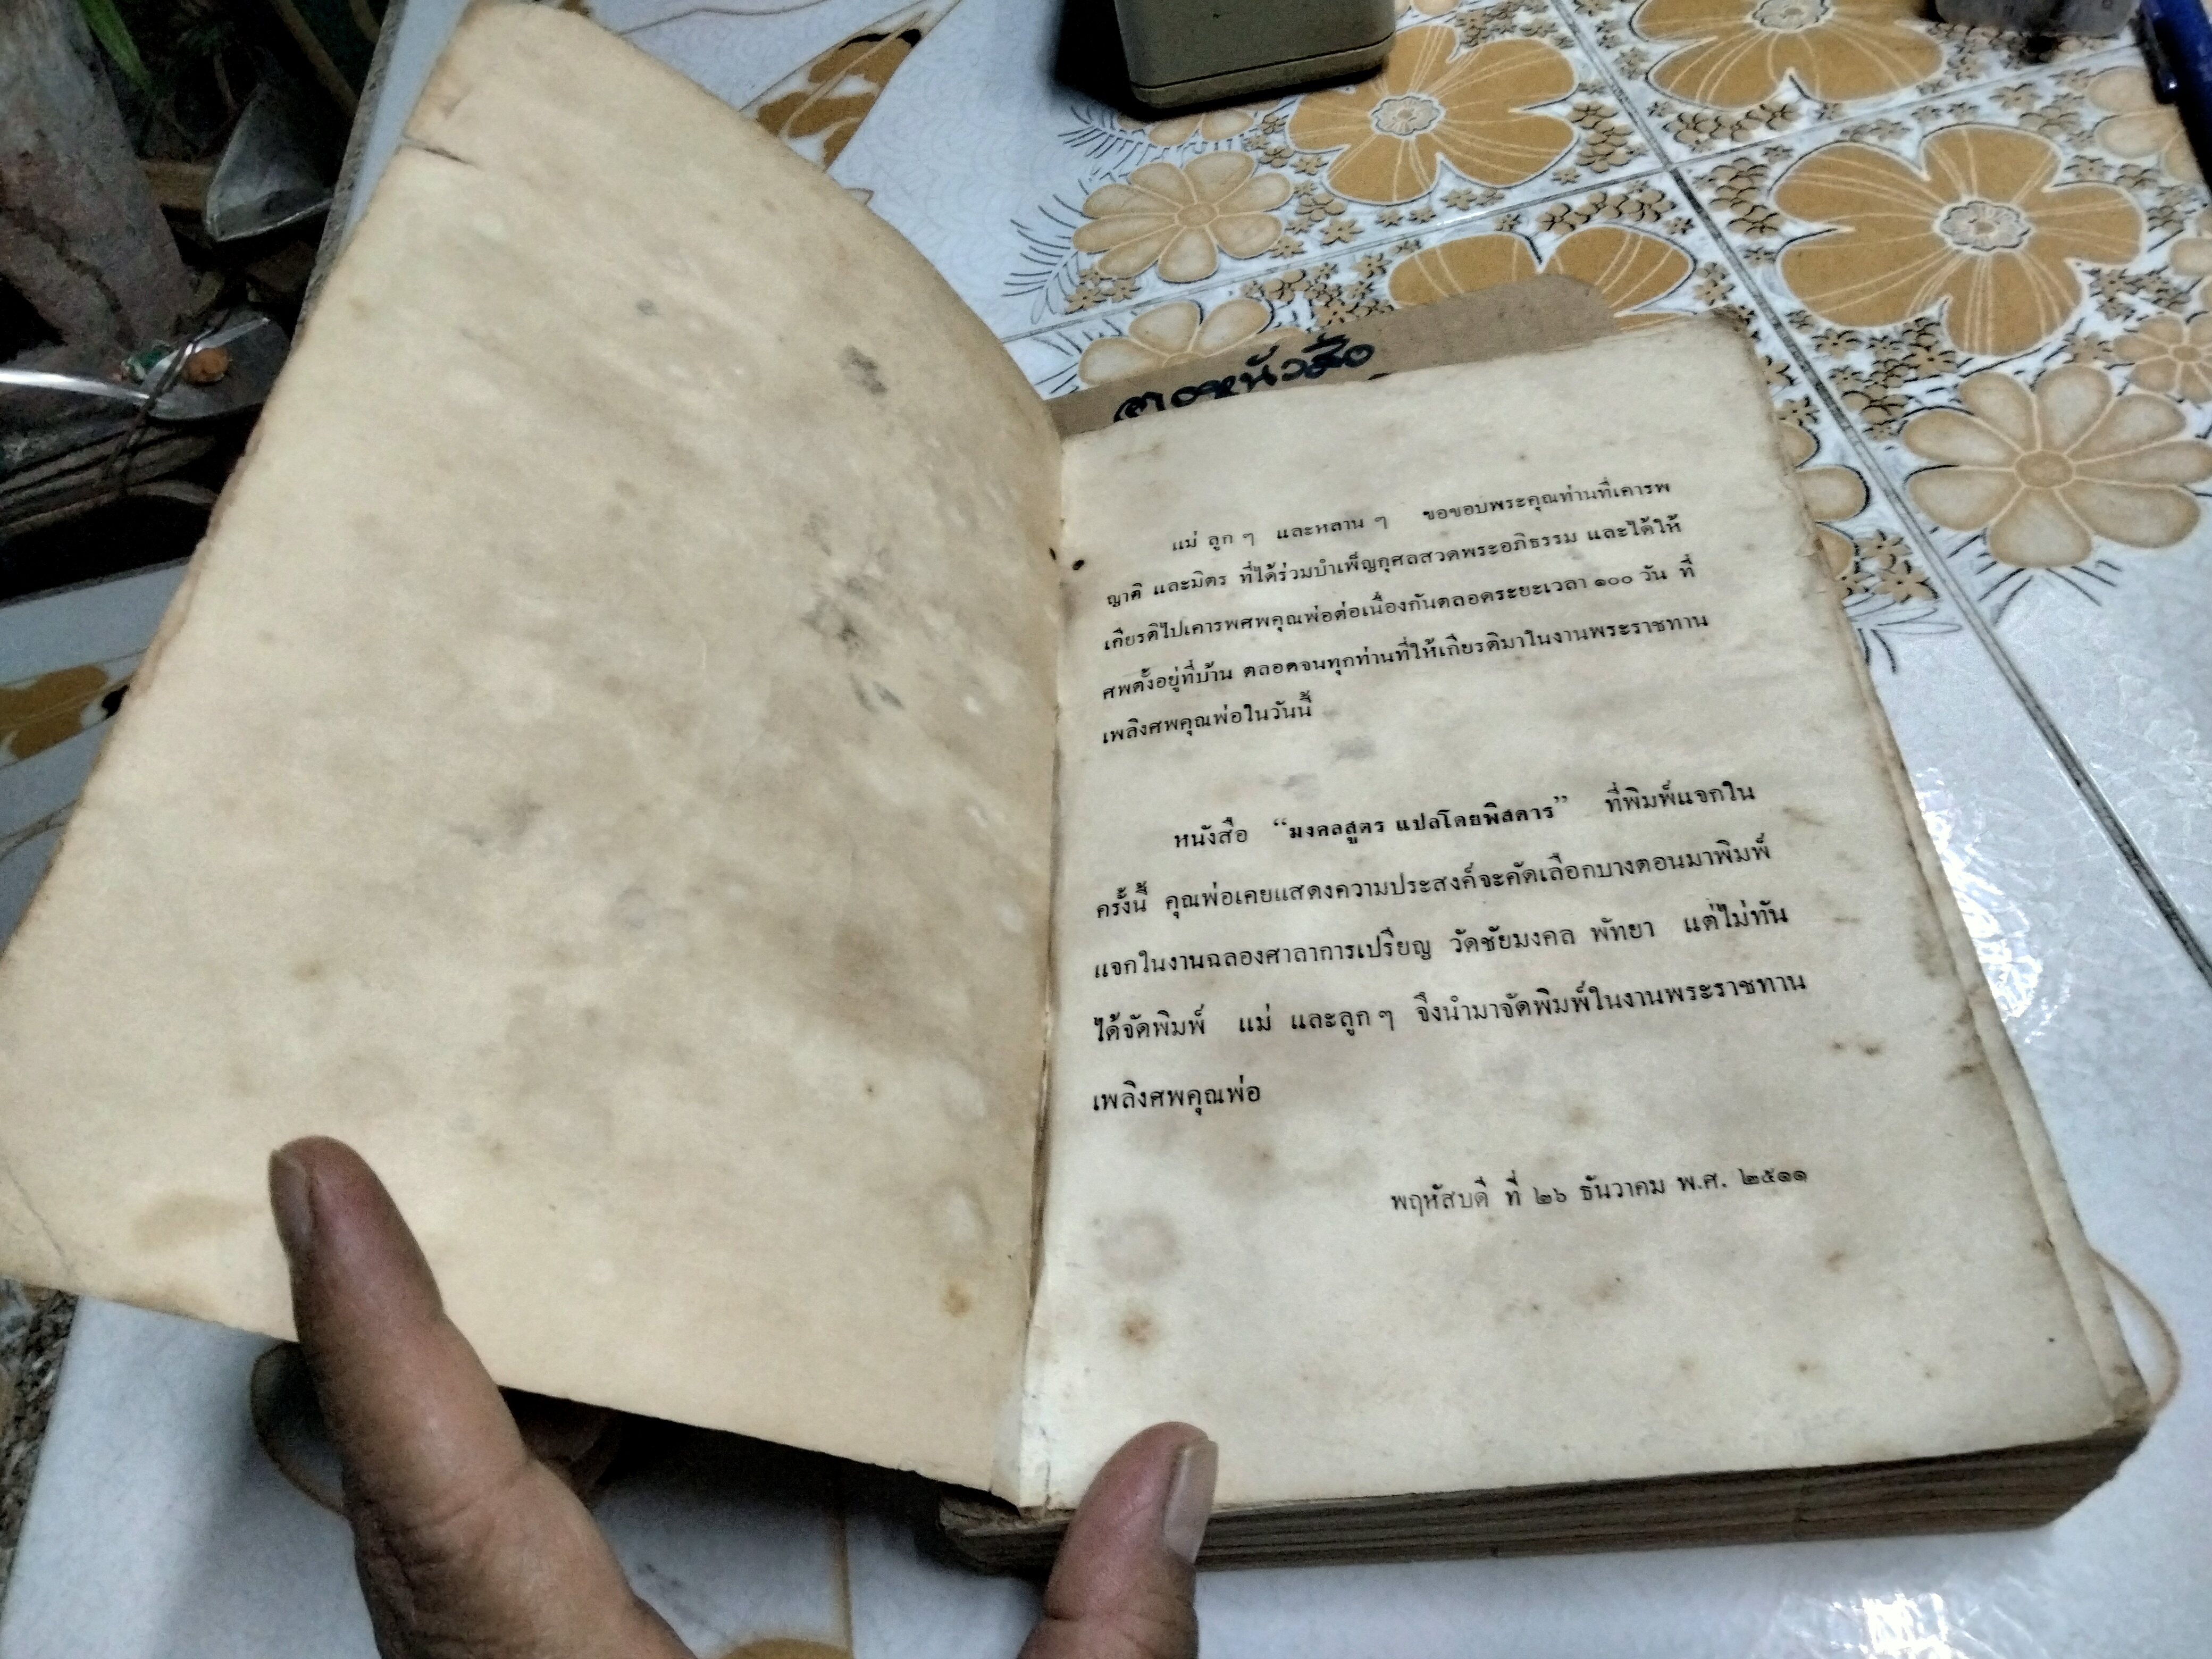 แม่ ลูก ๆ และหลาน ๆ ขอขอบพระคุณท่านที่เคารพ
ญาติ และมิตร ที่ได้ร่วมบำเพ็ญกุศลสวดพระอภิธรรม และได้ให้
เกียรติไปเคารพศพคุณพ่อต่อเนื่องกันตลอดระยะเวลา ๑๐๐ วัน ที่
ศพตั้งอยู่ที่บ้าน ตลอดจนทุกท่านที่ให้เกียรติมาในงานพระราชทาน
เพลิงศพคุณพ่อในวันนี้
หนังสือ “มงคลสูตร แปลโดยพิสดาร” ที่พิมพ์แจกใน
ครั้งนี้ คุณพ่อเคยแสดงความประสงค์จะคัดเลือกบางตอนมาพิมพ์
แจกในงานฉลองศาลาการเปรียญ วัดชัยมงคล พัทยา แต่ไม่ทัน
ได้จัดพิมพ์ แม่ และลูก ๆ จึงนำมาจัดพิมพ์ในงานพระราชทาน
เพลิงศพคุณพ่อ
พฤหัสบดี ที่ ๒๖ ธันวาคม พ.ศ. ๒๕๑๑